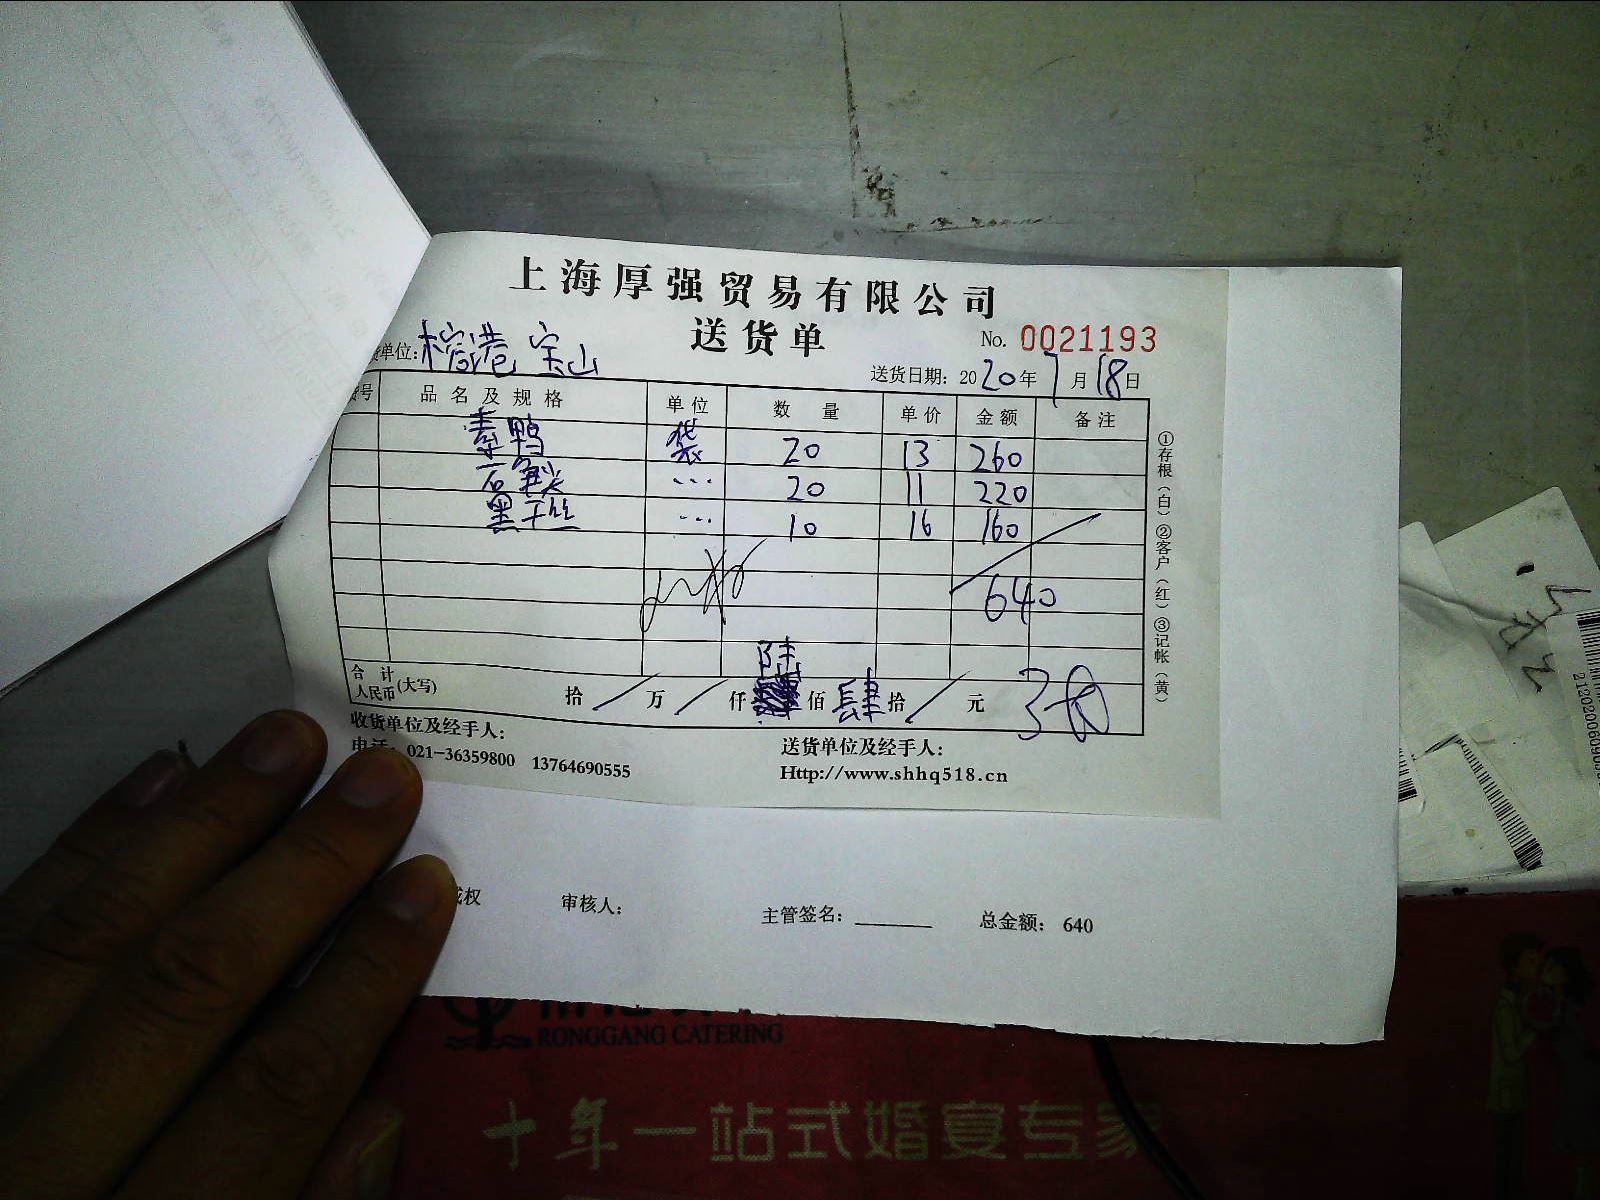 上海厚强贸易有限公司
送货单
No. 0021193
货单位: 榕港 宝山
送货日期: 2020年7月18日
货号 品名及规格 单位 数量 单价 金额 备注
素鸭 袋 20 13 260
石斛尖 ... 20 11 220
黑干丝 ... 10 16 160
640
合计人民币(大写) 拾 / 万 / 仟 陆 佰 肆 拾 / 元
①存根(白) ②客户(红) ③记帐(黄)
收货单位及经手人:
送货单位及经手人:
电话: 021-36359800 13764690555
Http://www.shhq518.cn
权 审核人: 主管签名: 总金额: 640
RONGGANG CATERING
十年一站式婚宴专家